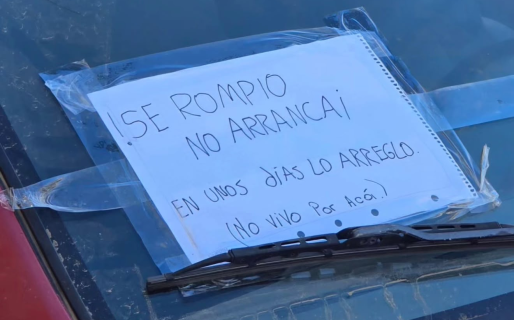 ¡SE ROMPIO
NO ARRANCA¡
EN UNOS DÍAS LO ARREGLO.
(No Vivo Por Acá.)